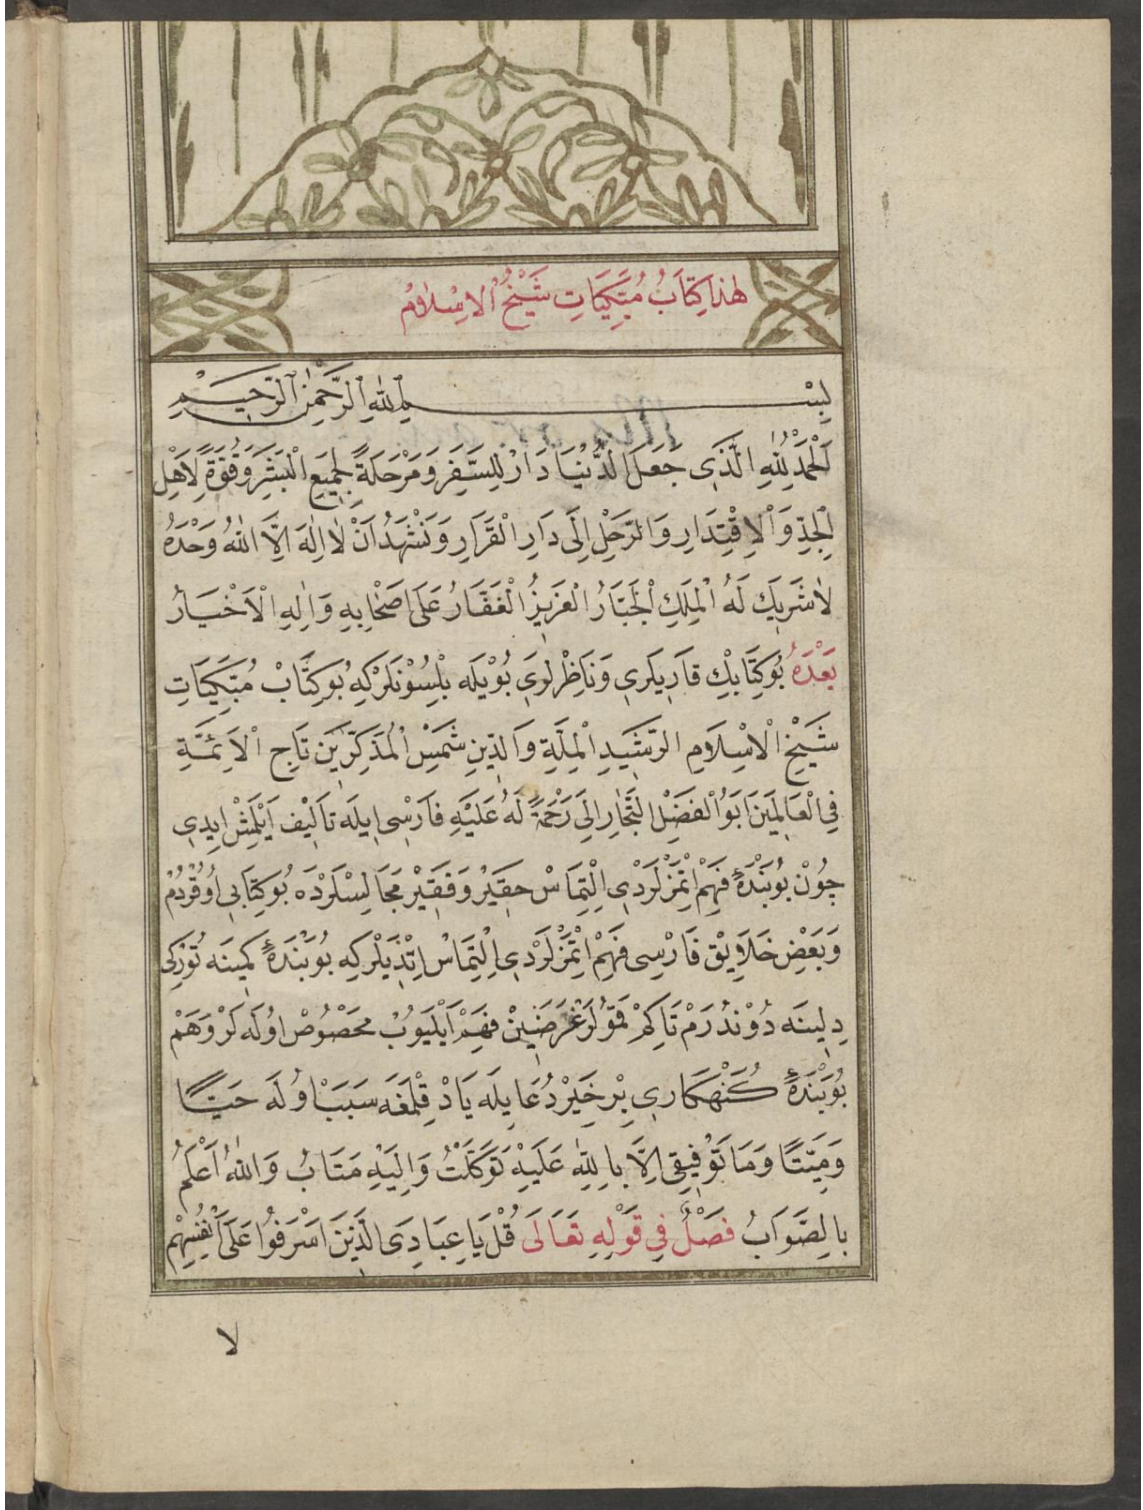 هٰذَا كِتَابُ مُبَكِّيَاتِ شَيْخُ الْاِسْلَامُ
بِسْمِ اللّٰهِ الرَّحْمٰنِ الرَّحِيمِ
اَلْحَمْدُ لِلّٰهِ الَّذَى جَعَلَ الدُّنْيَا دَارْ لِلسَّفَرِ وَمَرْحَلَةً لِجَمِيَعِ الْبَشَرِ وَقُوَّةً لِاَهْلِ
الْجِدِّ وَالْاِقْتِدَارِ وَالرَّحْلِ اِلَى دَارِ الْقَرَارِ وَنَشْهَدُ اَنْ لَا اِلٰهَ اِلَّا اللّٰهُ وَحْدَهُ
لَا شَرِيَكَ لَهُ الْمَلِكِ الْجَبَّارُ الْعَزِيزُ الْغَفَّارُ عَلَى اَصْحَابِهِ وَاٰلِهِ الْاَخْيَارُ
بَعْدَهُ بُو كِتَابِكْ قَارِيلَرِي وَنَاظِرْلَرِي بُوْيَلَه بِلْسُوْنْلَرْكِه بُو كِتَابْ مُبَكِّيَاتِ
شَيْخِ الْاِسْلَامِ الرَّشَيدِ الْمِلَّةِ وَالدِّينِ شَمْسِ الْمُذَكِّرِيَن تَاجِ الْاَئِمَّةِ
فِي الْعَالِمَيَن اَبَوُ الْفَضْلِ الْبُخَارِ اِلَى رَحْمَةً لَهُ عَلَيْهِ فَارْسِى اِيلَه تَاَلِيْف اَيْلَمِشْ اِيدِي
چُوْنْ بُو بَنْدَهْءِ فَهِمْ اِتْمَزْلَرْدِي اِلْتِمَاسْ حَقِيْرُ وَفَقِيْرْ مَجَالِسْلَرْدَه بُو كِتَابِى اُوقُرْدُمْ
وَبَعْضِ خَلَايِقْ فَارْسِى فَهِمْ اِتْمَزْلَرْدِي اِلْتِمَاسْ اِتْدِيلَرْ كِه بُو بَنْدَهْءِ كَمِينَه تُورْكِى
دِلِينَه دُوْنْدُرَمْ تَاكِهْ قَمُولَرْ غَرَضِيِنْ فَهِمْ اَيْلَيُوبْ مَحْصُوصْ اُولَه لَرْ وَهَمْ
بُو بَنْدَهْءِ كُنَهْكَارِي بِرْ خَيْرْ دُعَا يِلَه يَادْ قِلْمَغَه سَبَبْ اُولَه حَيًّا
وَمَيِّتًا وَمَا تَوْفِيقِى اِلَّا بِاللّٰهِ عَلَيْهِ تَوَكَّلْتُ وَاِلَيْهِ مَتَابُ وَاللّٰهُ اَعْلَمُ
بِالصَّوَابُ فَصْلٌ فِي قَوْلِهِ تَعَالَى قُلْ يَا عِبَادِىَ الَّذِيَنَ اَسْرَفُوا عَلَى اَنْفُسِهِمْ
لا